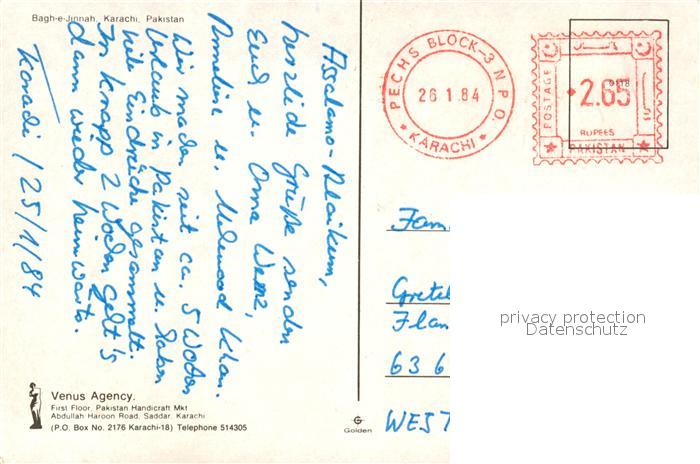 Bagh-e-Jinnah, Karachi, Pakistan
Assalamo-Alaikum,
herzliche Grüße senden
Euch u. Oma
Annelise u. Mahmood Khan.
Wir machen seit ca. 5 Wochen
Urlaub in Pakistan u. haben
viele Eindrücke gesammelt.
In knapp 2 Wochen geht's
dann wieder heimwärts.
Karachi / 25/1/84
Venus Agency.
First Floor, Pakistan Handicraft Mkt
Abdullah Haroon Road, Saddar, Karachi
(P.O. Box No. 2176 Karachi-18) Telephone 514305
G
Golden
PECHS BLOCK-3 N.P.O.
26 1.84
KARACHI
POSTAGE
2.65
RUPEES
PAKISTAN
Fam
Gretel
Flan
63 6
WEST
privacy protection
Datenschutz